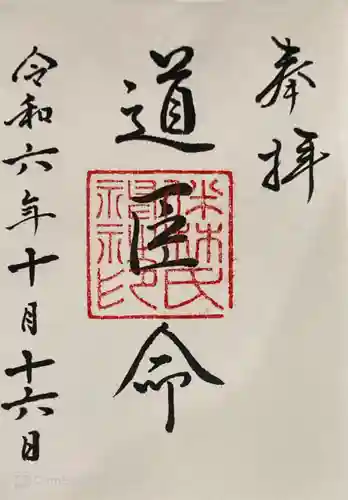 奉拝
道臣命
令和六年十月十六日